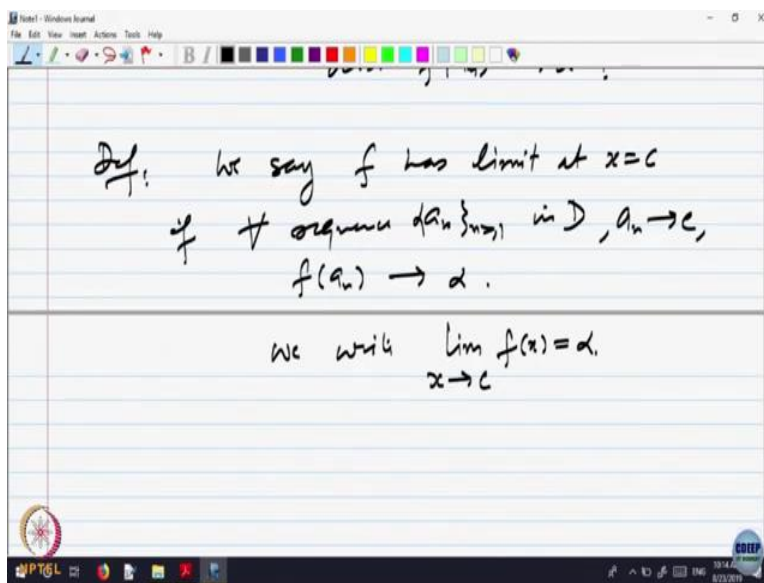 Note1 - Windows Journal
File Edit View Insert Actions Tools Help
B I
Def: We say f has limit at x = c
if ∀ sequence {aₙ}ₙ≥₁ in D, aₙ → c,
f(aₙ) → α.
we write lim f(x) = α.
x → c
NPTEL
CDEEP
8/23/2019